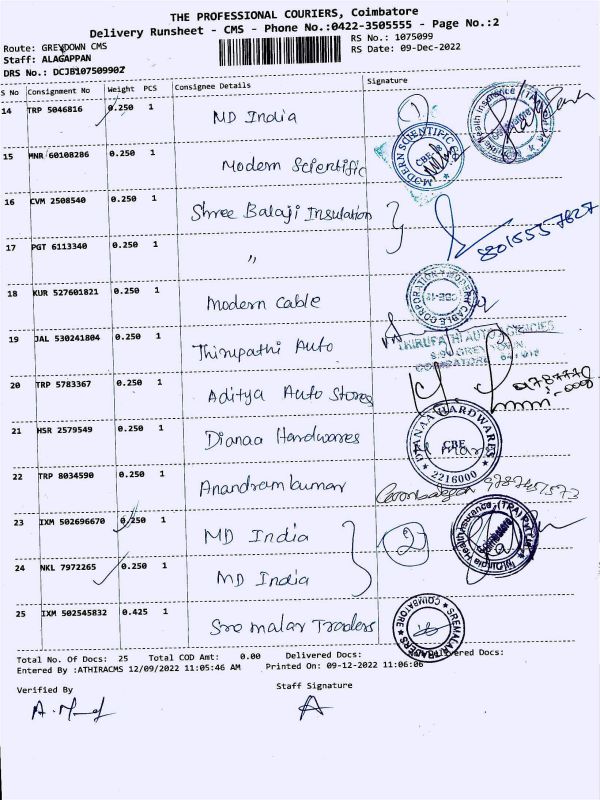 THE PROFESSIONAL COURIERS, Coimbatore
Delivery Runsheet - CMS - Phone No.:0422-3505555 - Page No.:2
Route: GREYDOWN CMS
RS No.: 1075099
Staff: ALAGAPPAN
RS Date: 09-Dec-2022
DRS No.: DCJB1075099902
S No Consignment No Weight PCS Consignee Details Signature
14 TRP 5046816 0.250 1 MD India 1
15 MNR 60108286 0.250 1 Modern Scientific
MODERN SCIENTIFIC CBE
16 CVM 2508540 0.250 1 Shree Balaji Insulation
17 PGT 6113340 0.250 1 〃
18 KUR 527601821 0.250 1 Modern Cable
MODERN CABLE CORPORATION
19 JAL 530241804 0.250 1 Thirupathi Auto
THIRUPATHI AUTO AGENCIES
COIMBATORE
20 TRP 5783367 0.250 1 Aditya Auto Stores
21 HSR 2579549 0.250 1 Dianaa Hardwares
DIANAA HARDWARES CBE 2216000
22 TRP 8034590 0.250 1 Anandramkumar
23 IXM 502696670 0.250 1 MD India 2
24 NKL 7972265 0.250 1 MD India
25 IXM 502545832 0.425 1 Sree malar Traders
SREMALAR TRADERS COIMBATORE
Total No. Of Docs: 25 Total COD Amt: 0.00 Delivered Docs: vered Docs:
Entered By :ATHIRACMS 12/09/2022 11:05:46 AM Printed On: 09-12-2022 11:06:06
Verified By Staff Signature